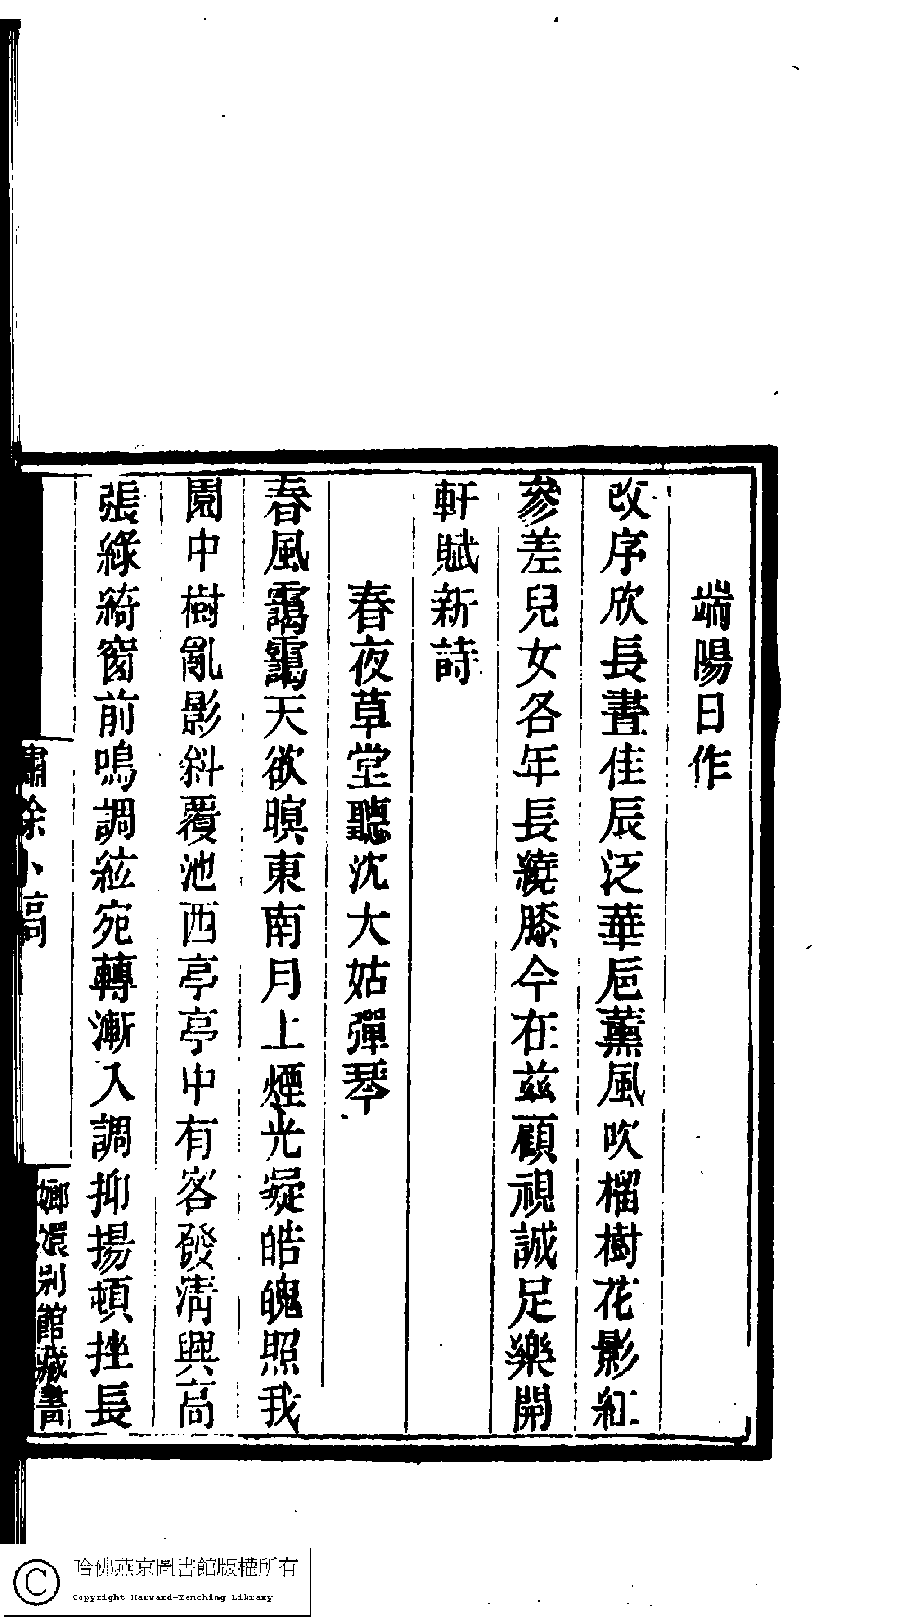 端陽日作
改序欣長晝佳辰泛華巵薰風吹榴樹花影紅
參差兒女各年長繞膝今在茲顧視誠足樂開
軒賦新詩
春夜草堂聽沈大姑彈琴
春風靄靄天欲暝東南月上煙光凝皓魄照我
園中樹亂影斜覆池西亭亭中有客發清興高
張綠綺窗前鳴調絃宛轉漸入調抑揚頓挫長
繡餘小稿
嫏嬛別館藏書
哈佛燕京圖書館版權所有
Copyright Harvard-Yenching Library